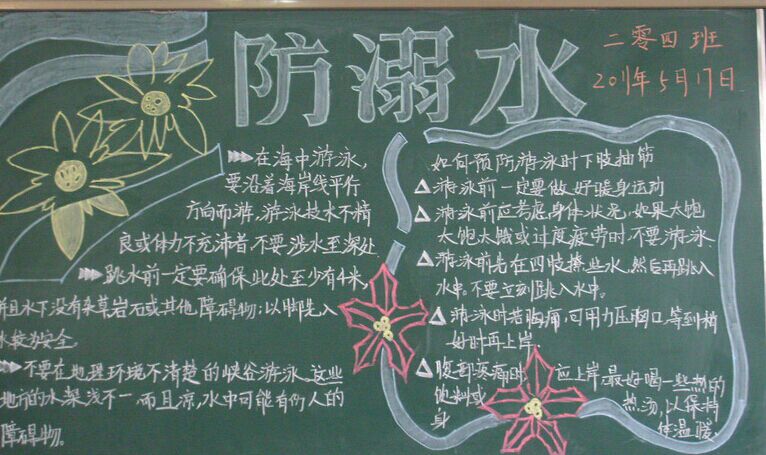 防溺水
二零四班
2011年5月17日
在海中游泳,
要沿着海岸线平行
方向而游,游泳技术不精
良或体力不充沛者,不要涉水至深处
跳水前一定要确保此处至少有4米,
并且水下没有杂草岩石或其他障碍物;以脚先入
水较为安全
不要在地理环境不清楚的峡谷游泳.这些
地方的水深浅不一,而且凉,水中可能有伤人的
障碍物。
如何预防游泳时下肢抽筋
游泳前一定要做好暖身运动
游泳前应考虑身体状况,如果太饱
太饱太饿或过度疲劳时,不要游泳
游泳前先在四肢撩些水,然后再跳入
水中。不要立刻跳入水中。
游泳时若胸痛,可用力压胸口,等到稍
好时再上岸.
腹部疼痛时,应上岸,最好喝一些热的
饮料或热汤,以保持
身体温暖.